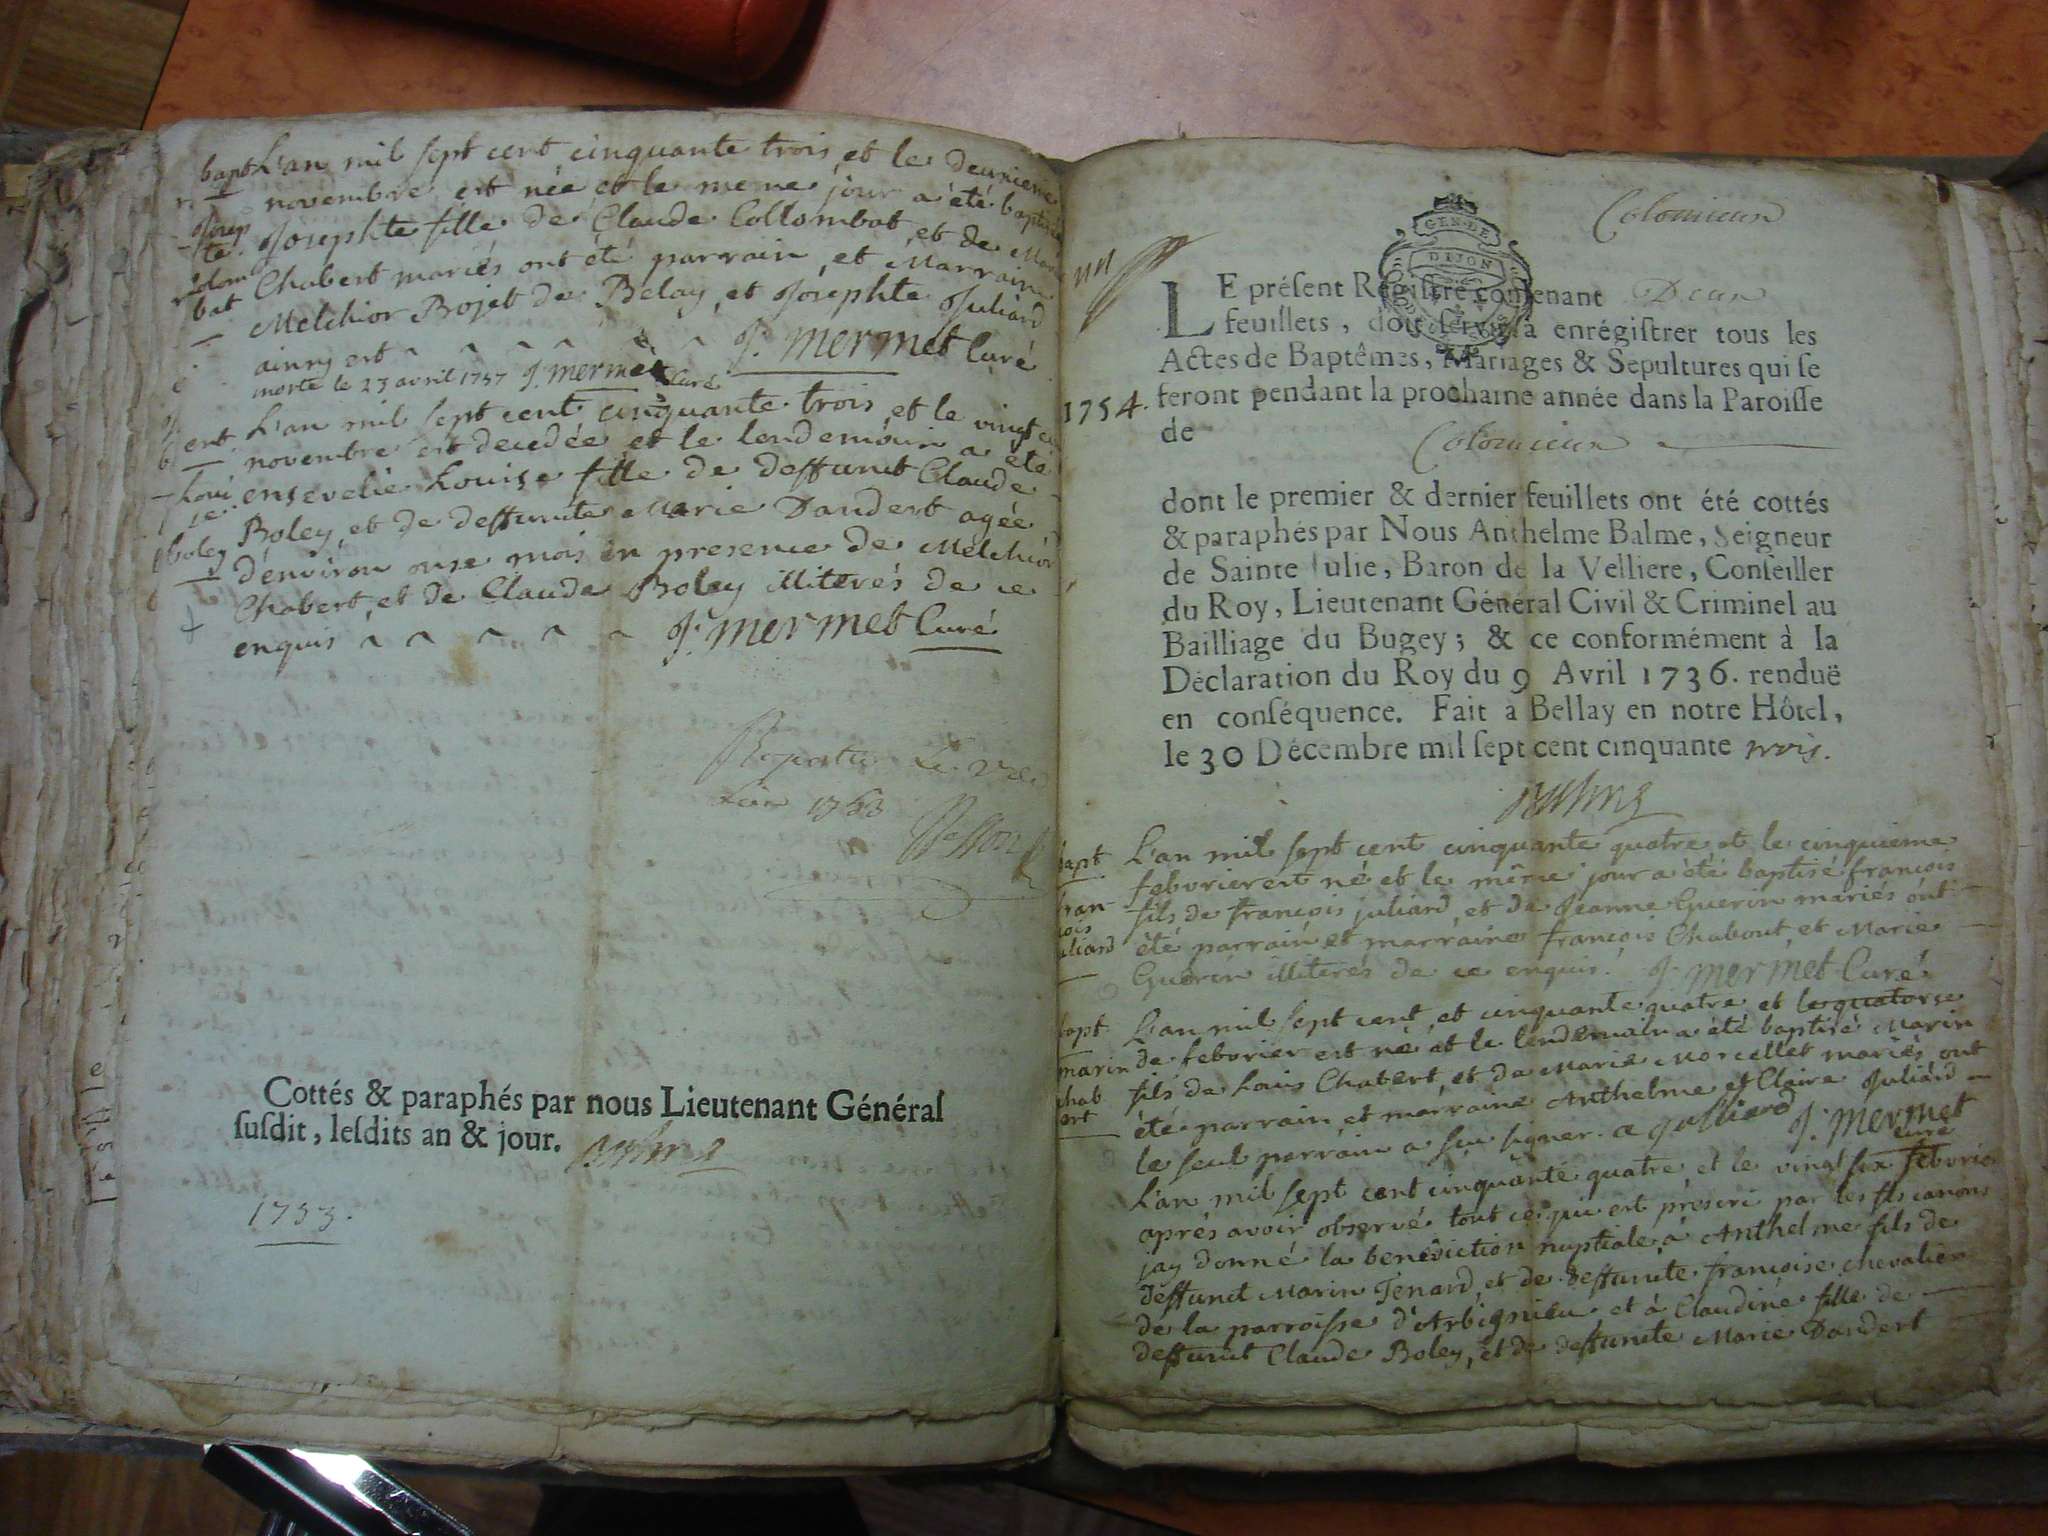 bapt L'an mil sept cent cinquante trois et le deuxieme
novembre est née et le meme jour a été baptisée
Josephte fille de Claude Collombat et de Marie
Chabert mariés ont été parrain et Marraine
Melchior Bojet de Belay et Josephte Juliard
J. Mermet Curé
morte le 23 avril 1757 J. Mermet Curé
Josep
te
Colom
bat
L'an mil sept cent cinquante trois et le vingt
novembre est decedée et le lendemain a été
ensevelie Louise fille de deffunct Claude
Boley, et de deffuncte Marie Dandert agée
d'environ onse mois en presence de Melchior
Chabert, et de Claude Boley illiterés de ce
enquis J. Mermet Curé
ent.
Loui
se
boley
1753
Cottés & paraphés par nous Lieutenant Général
susdit, lesdits an & jour.
1753.
Colomieux
GEN. DE
DIJON
LE présent Régistre contenant Deux
feuillets, doit servir à enrégistrer tous les
Actes de Baptêmes, Mariages & Sepultures qui se
1754. feront pendant la prochaine année dans la Paroisse
de Colomieux
dont le premier & dernier feuillets ont été cottés
& paraphés par Nous Anthelme Balme, Seigneur
de Sainte Julie, Baron de la Velliere, Conseiller
du Roy, Lieutenant Général Civil & Criminel au
Bailliage du Bugey; & ce conformément à la
Déclaration du Roy du 9 Avril 1736. renduë
en conséquence. Fait à Bellay en notre Hôtel,
le 30 Décembre mil sept cent cinquante trois.
bapt L'an mil sept cent cinquante quatre et le cinquieme
febvrier est né et le même jour a été baptisé françois
fils de françois juliard, et de Jeanne Guerin mariés ont
été parrain et marraine françois Chabout, et Marie
Guerin illiterés de ce enquis. J. Mermet Curé
fran
cois
juliard
bapt L'an mil sept cent et cinquante quatre et le quatorse
marin de febvrier est né et le lendemain a été baptisé Marin
chab fils de Louis Chabert, et de Marie Morcellet mariés ont
ert été parrain et marraine Anthelme et Claire Juliard
le seul parrain a sçu signer. a julliard J. Mermet
curé
L'an mil sept cent cinquante quatre et le vingt six febvrier
aprés avoir observé tout ce qui est prescri par les sts canons
jay donné la benediction nuptiale à Anthelme fils de
deffunct Marin Tenard, et de deffuncte françoise chevalier
de la parroisse d'Arbignieu et à Claudine fille de
deffunct Claude Boley, et de deffuncte Marie Dandert